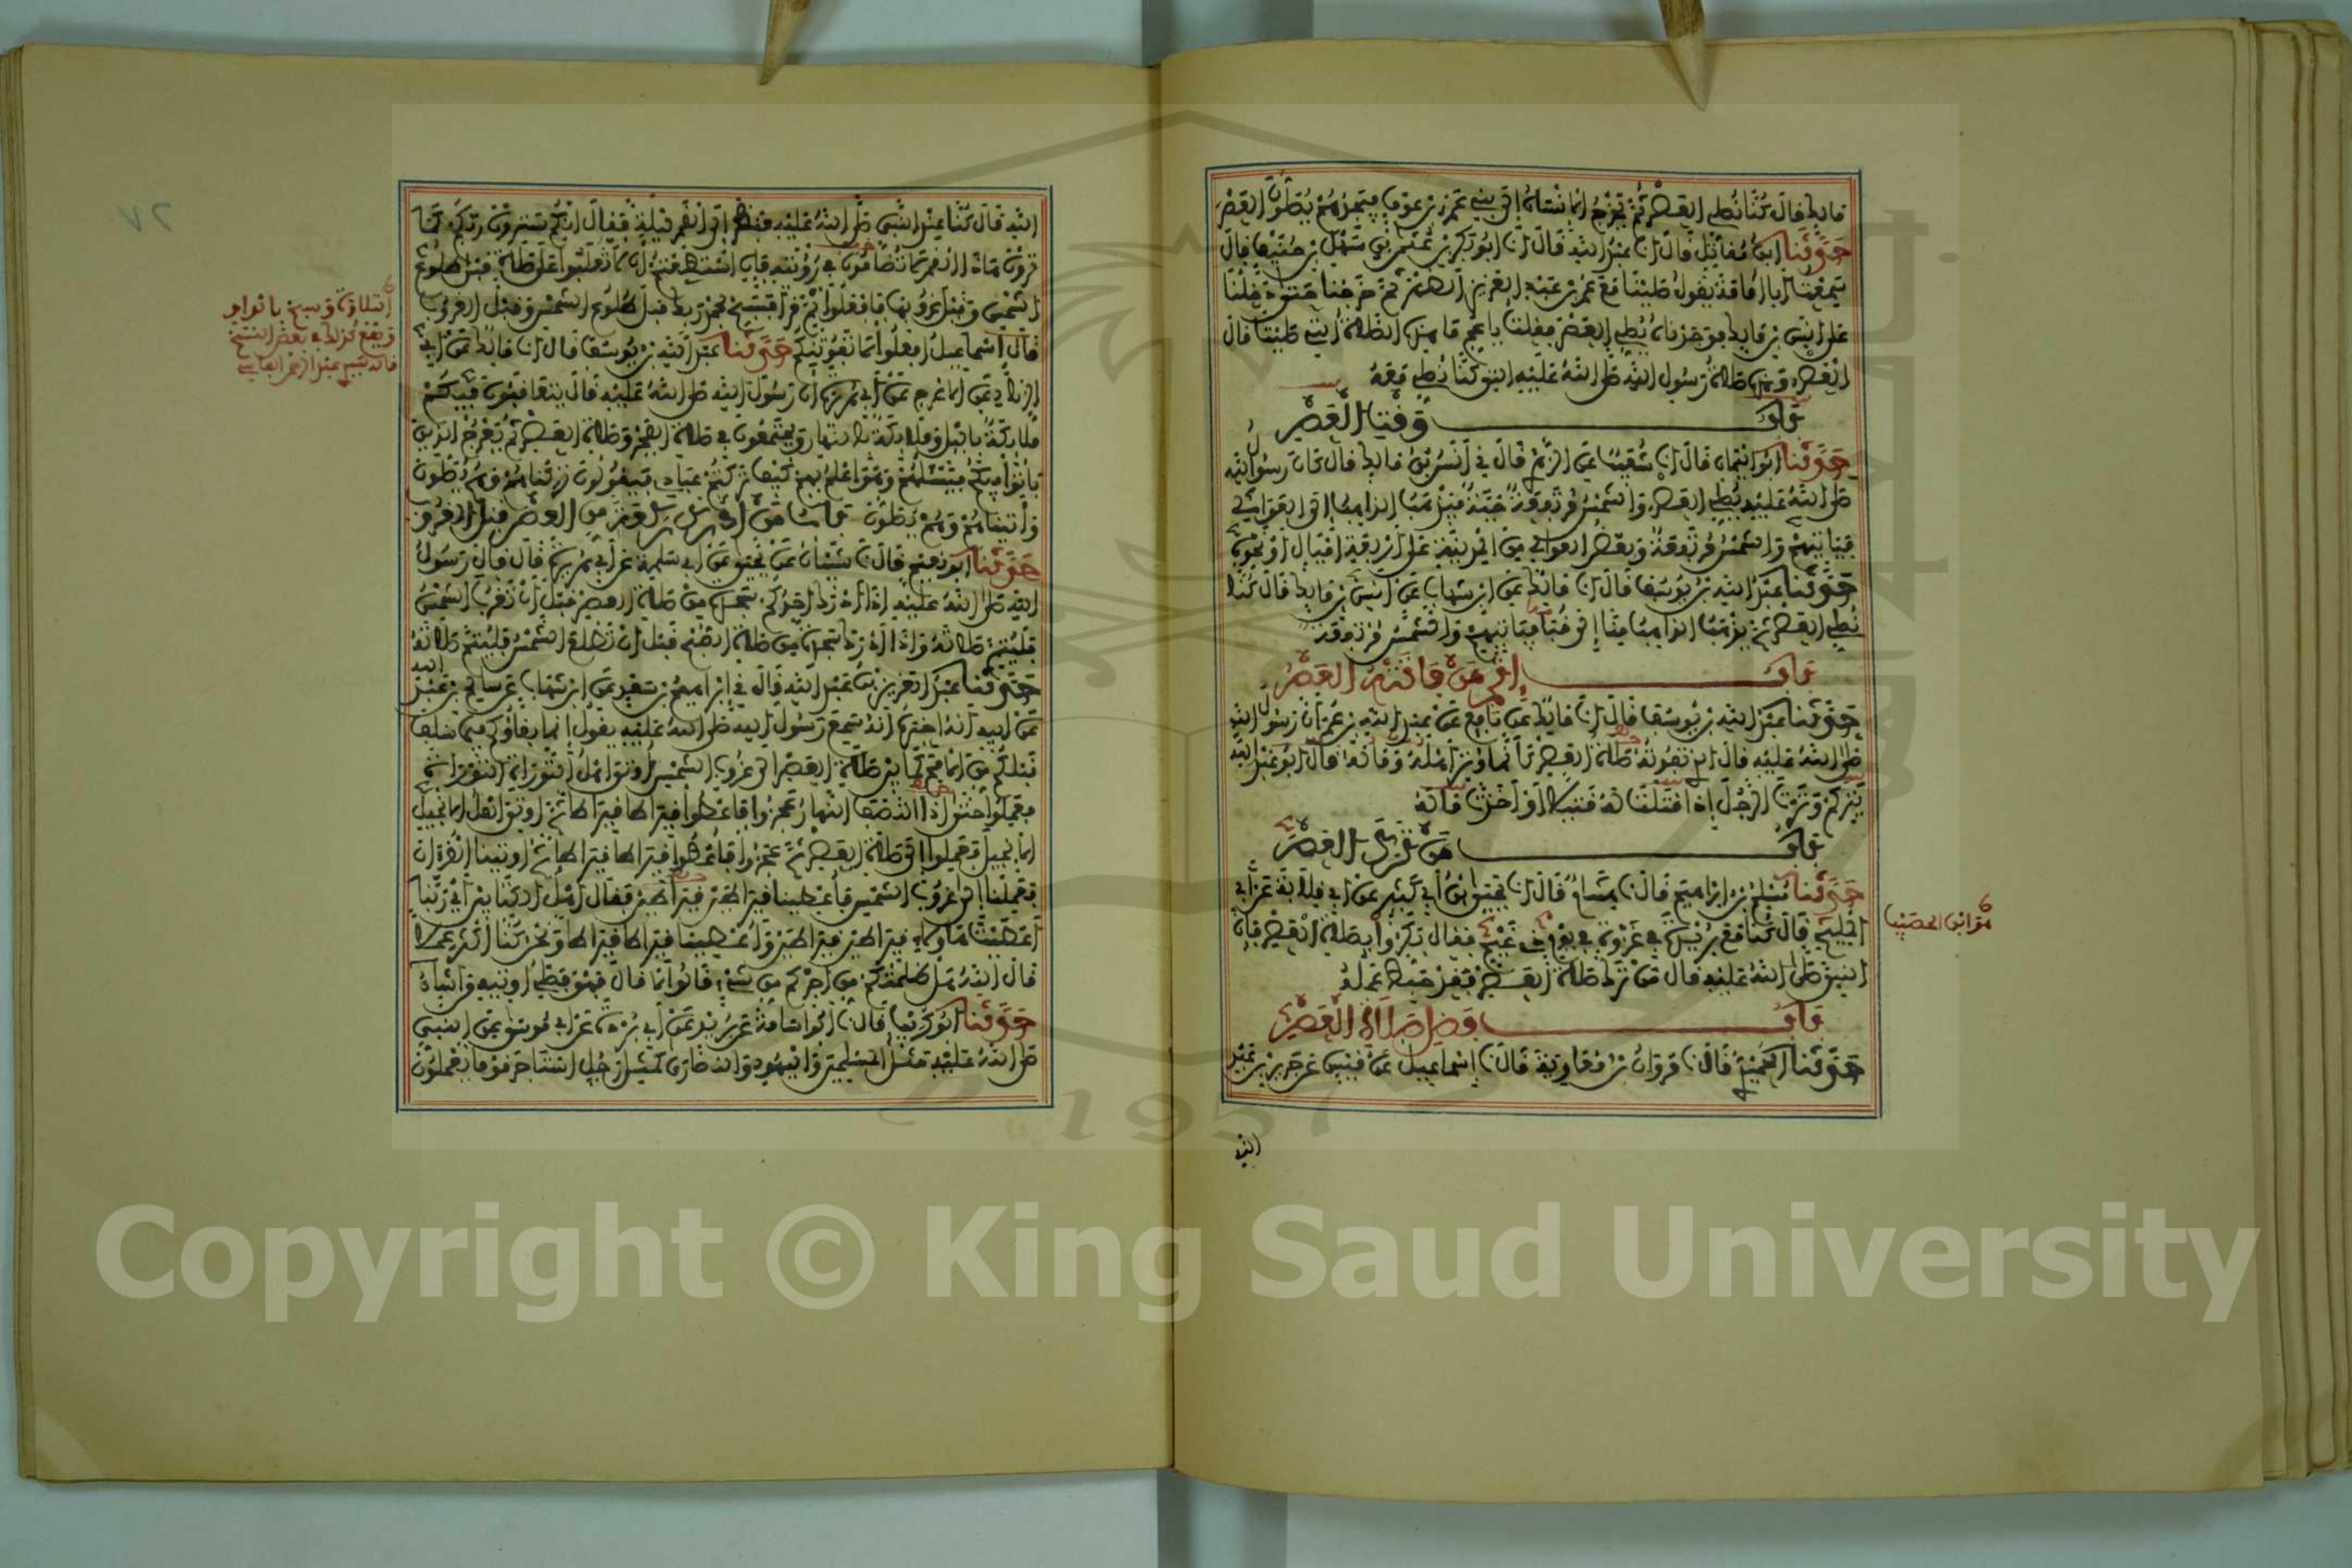 مالك قال كنا نصلي العصر ثم يخرج الانسان الى بني عمرو بن عوف فيجدهم يصلون العصر
حدثنا ابن مقاتل قال انا عبد الله قال انا ابو بكر بن عثمن بن سهل بن حنيف قال
سمعت ابا امامة يقول صلينا مع عمر بن عبد العزيز الظهر ثم خرجنا حتى دخلنا
على انس بن مالك فوجدناه يصلي العصر فقلت يا عم ما هذه الصلاة التي صليت قال
العصر وهذه صلاة رسول الله صلى الله عليه التي كنا نصلي معه
باب وقت العصر
حدثنا ابو اليمان قال انا شعيب عن الزهري قال ني انس بن مالك قال كان رسول الله
صلى الله عليه يصلي العصر والشمس مرتفعة حية فيذهب الذاهب الى العوالي
فياتيهم والشمس مرتفعة وبعض العوالي من المدينة على اربعة اميال او نحوه
حدثنا عبد الله بن يوسف قال انا مالك عن ابن شهاب عن انس بن مالك قال كنا
نصلي العصر ثم يذهب الذاهب منا الى قباء فياتيهم والشمس مرتفعة
باب اثم من فاتته العصر
حدثنا عبد الله بن يوسف قال انا مالك عن نافع عن عبد الله بن عمر ان رسول الله
صلى الله عليه قال الذي تفوته صلاة العصر كانما وتر اهله وماله قال ابو عبد الله
يتركم وترت الرجل اذا قتلت له قتيلا او اخذت ماله
باب من ترك العصر
حدثنا مسلم بن ابراهيم قال نا هشام قال انا يحيى ابن ابي كثير عن ابي قلابة عن ابي
المليح قال كنا مع بريدة في غزوة في يوم ذي غيم فقال بكروا بصلاة العصر فان
النبي صلى الله عليه قال من ترك صلاة العصر فقد حبط عمله
باب فضل صلاة العصر
حدثنا الحميدي قال نا مروان بن معاوية قال نا اسماعيل عن قيس عن جرير بن عبد
الله
هو ابن الحصيب
٧٢
الله قال كنا عند النبي صلى الله عليه فنظر الى القمر ليلة فقال انكم سترون ربكم كما
ترون هذا القمر لا تضامون في رؤيته فان استطعتم ان لا تغلبوا على صلاة قبل طلوع
الشمس وقبل غروبها فافعلوا ثم قرا فسبح بحمد ربك قبل طلوع الشمس وقبل الغروب
قال اسماعيل افعلوا لا تفوتنكم حدثنا عبد الله بن يوسف قال انا مالك عن ابي
الزناد عن الاعرج عن ابي هريرة ان رسول الله صلى الله عليه قال يتعاقبون فيكم
ملائكة باليل وملائكة بالنهار ويجتمعون في صلاة الفجر وصلاة العصر ثم يعرج الذين
باتوا فيكم فيسئلهم وهو اعلم بهم كيف تركتم عبادي فيقولون تركناهم وهم يصلون
واتيناهم وهم يصلون باب من ادرك ركعة من العصر قبل الغروب
حدثنا ابو نعيم قال نا شيبان عن يحيى عن ابي سلمة عن ابي هريرة قال قال رسول
الله صلى الله عليه اذا ادرك احدكم سجدة من صلاة العصر قبل ان تغرب الشمس
فليتم صلاته واذا ادرك سجدة من صلاة الصبح قبل ان تطلع الشمس فليتم صلاته
حدثنا عبد العزيز بن عبد الله قال ني ابراهيم بن سعد عن ابن شهاب عن سالم بن عبد الله
عن ابيه انه اخبره انه سمع رسول الله صلى الله عليه يقول انما بقاؤكم فيما سلف
قبلكم من الامم كما بين صلاة العصر الى غروب الشمس اوتي اهل التورية التورية
فعملوا حتى اذا انتصف النهار عجزوا فاعطوا قيراطا قيراطا ثم اوتي اهل الانجيل
الانجيل فعملوا الى صلاة العصر ثم عجزوا فاعطوا قيراطا قيراطا ثم اوتينا القرءان
فعملنا الى غروب الشمس فاعطينا قيراطين قيراطين فقال اهل الكتابين اي ربنا
اعطيت هاولاء قيراطين قيراطين واعطيتنا قيراطا قيراطا ونحن كنا اكثر عملا
قال الله هل ظلمتكم من اجركم من شيء قالوا لا قال فهو فضلي اوتيه من اشاء
حدثنا ابو كريب قال نا ابو اسامة عن بريد عن ابي بردة عن ابي موسى عن النبي
صلى الله عليه مثل المسلمين واليهود والنصارى كمثل رجل استاجر قوما يعملون
التلاوة وسبح بالواو
ويقع كذلك في بعض النسخ